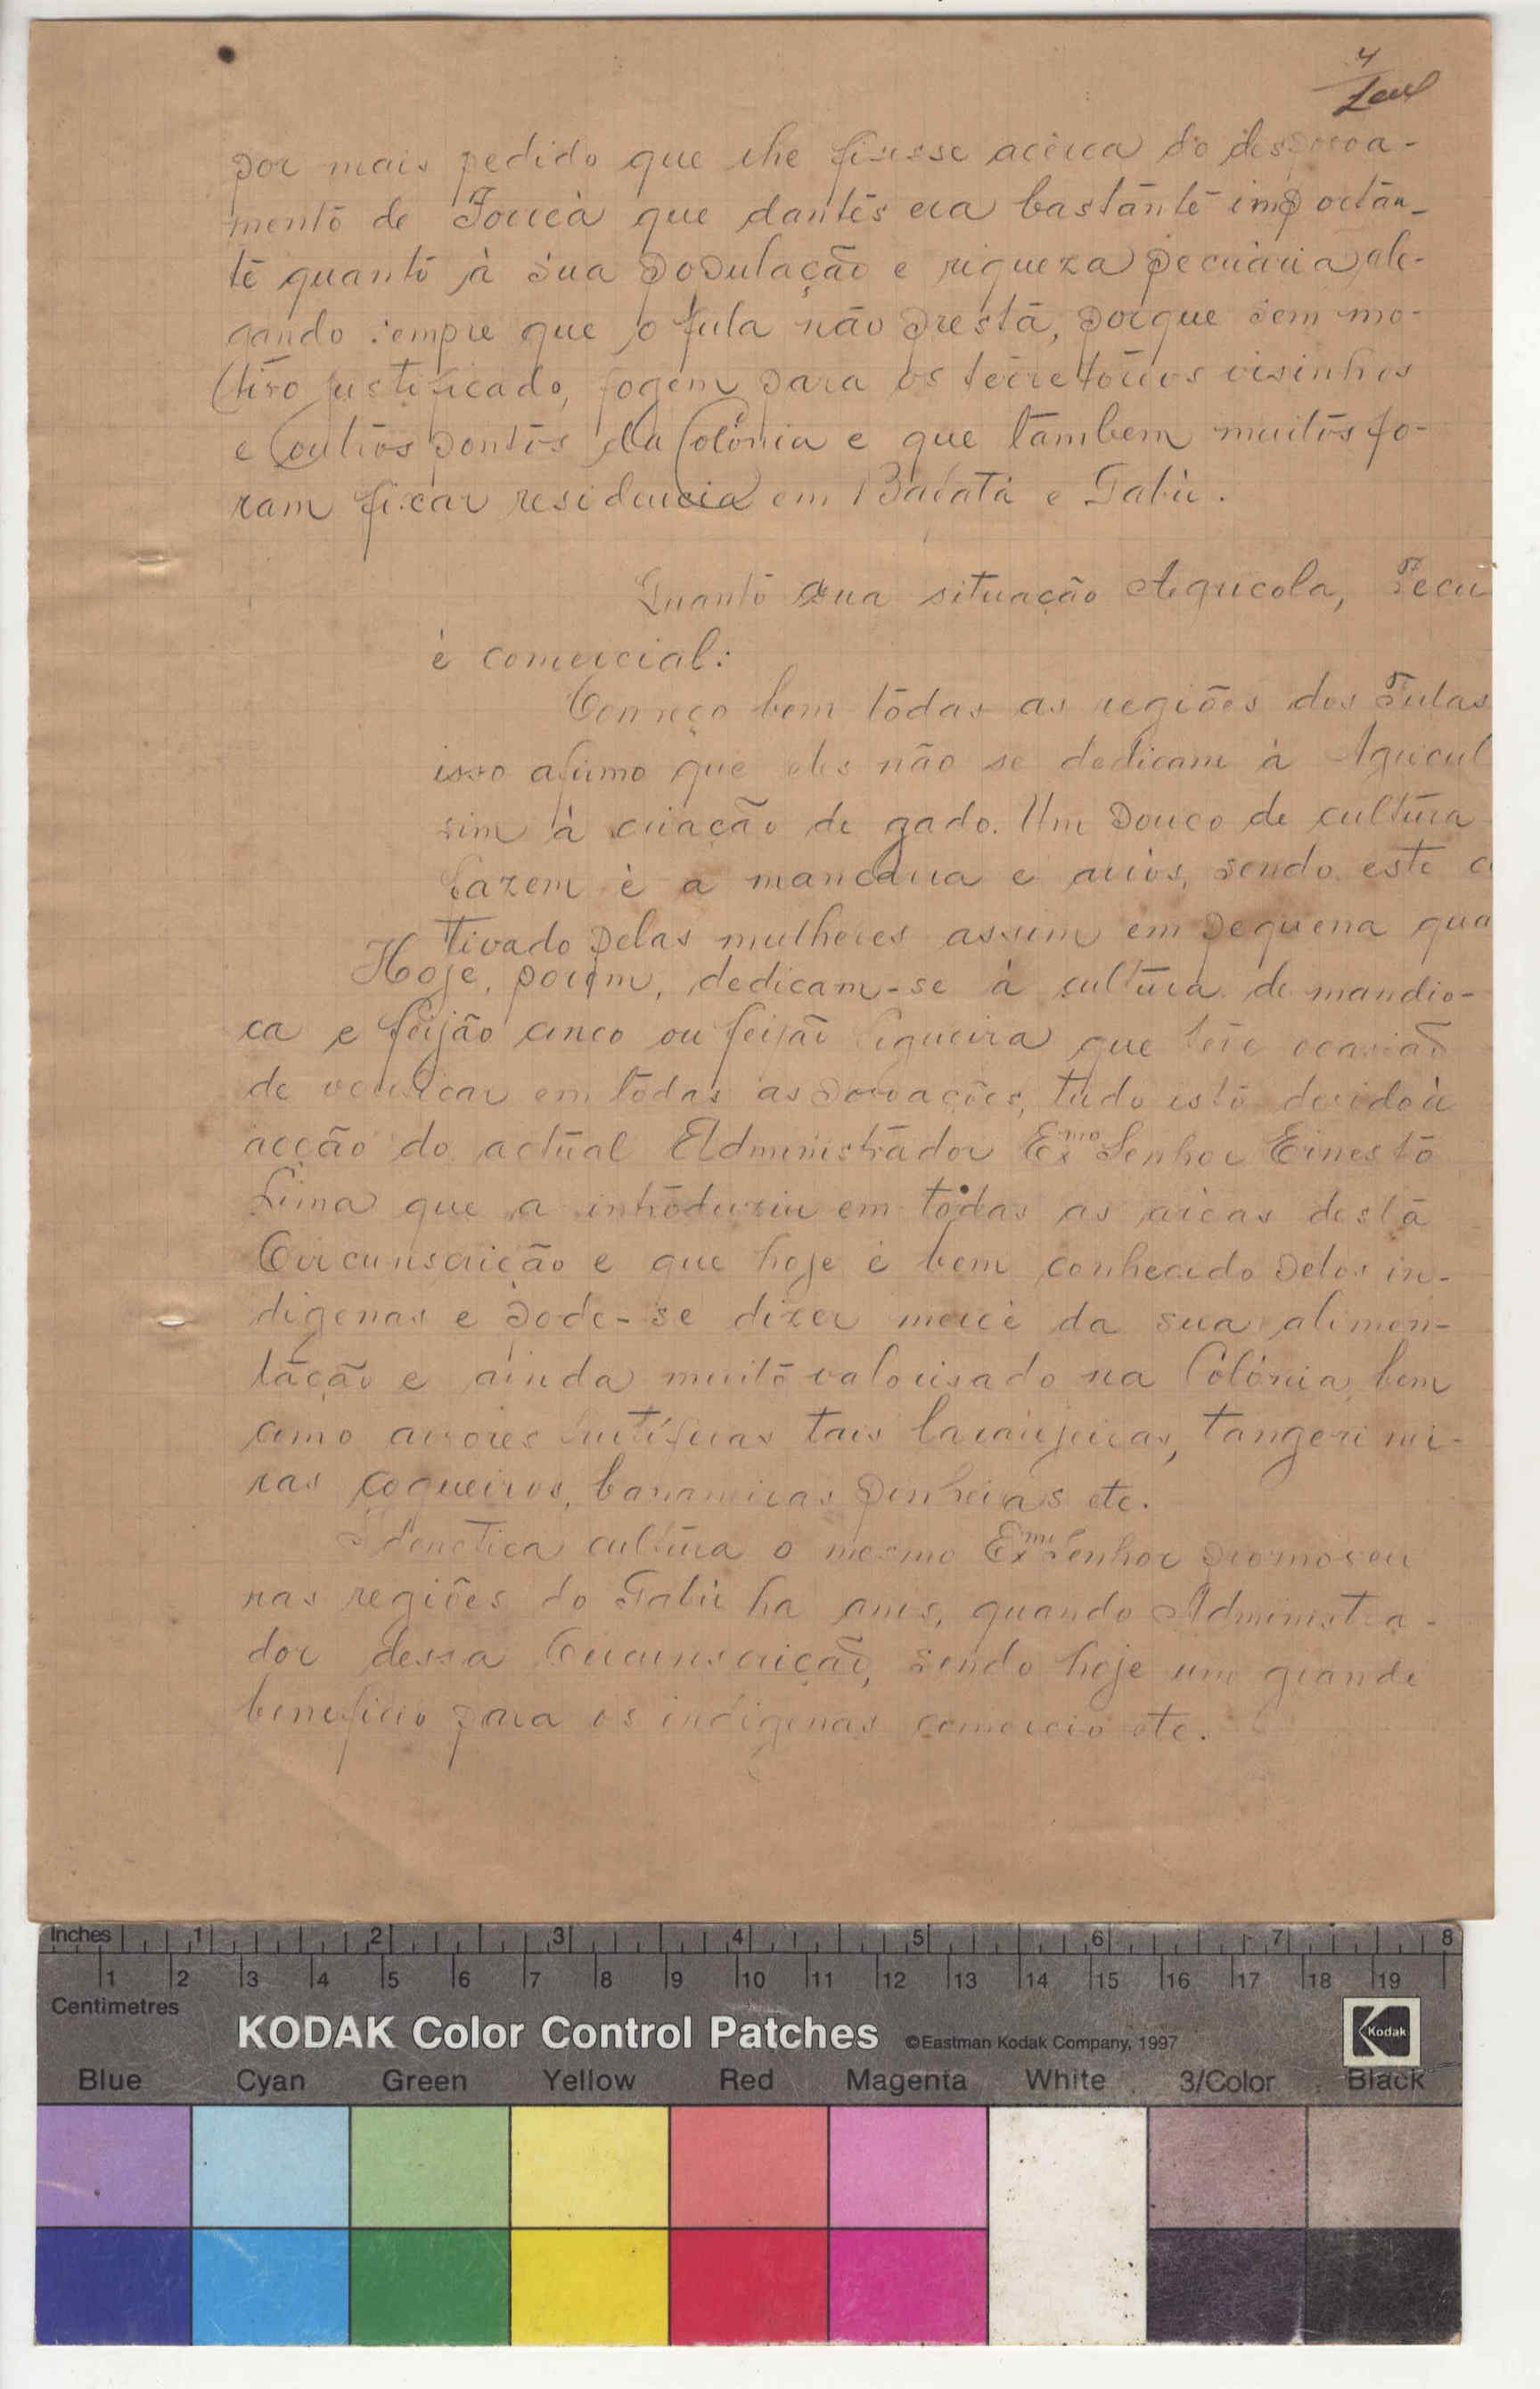 4
por mais pedido que lhe fisesse acêrca do despovoa-
mentō de Forreá que dantēs era bastāntē importān-
tē quantō à sua população e riqueza pecuária, ale-
gando sempre que o fula não prestā, porque sem mo-
tivo justificado, fogem para os térretōrios visinhos
e outrōs pontōs da Colónia e que tāmbem muitōs fo-
ram fixar residencia em Bafatá e Gabú.
Quantō a sua situação Agricola, Pecu
é comercial:
Conheço bem tōdas as regiões dos Fulas
isso afirmo que eles não se dedicam à Agricul
sim à criação de gado. Um pouco de cultūra
fazem é a mancarra e arrôs, sendo este c
tivado pelas mulheres assim em pequena qua
Hoje, porêm, dedicam-se à cultūra de mandio-
ca e feijão cinco ou feijão que tēve ocasião
de verificar em tōdas as povoações, tudo istō devido à
acção do actūal Administrādor Exmo Senhor Ernestō
Lima que a intrōduziu em tōdas as áreas destā
Circunscrição e que hoje é bem conhecido pelos in-
digenas e pode-se dizer mercê da sua alimen-
tāção e ainda muitō valorisado na Colónia, bem
como arvores frutíferas tais laranjeiras, tangerinei-
ras coqueiros, bananeiras pinheiras etc.
Idenetica cultūra o mesmo Exmo Senhor promoveu
nas regiões do Gabú ha anos, quando Administra-
dor dessa Circunscrição, sendo hoje um grande
beneficio para os indigenas comercio etc.
Inches 1 2 3 4 5 6 7 8
1 2 3 4 5 6 7 8 9 10 11 12 13 14 15 16 17 18 19
Centimetres
KODAK Color Control Patches ©Eastman Kodak Company, 1997 Kodak
Blue Cyan Green Yellow Red Magenta White 3/Color Black